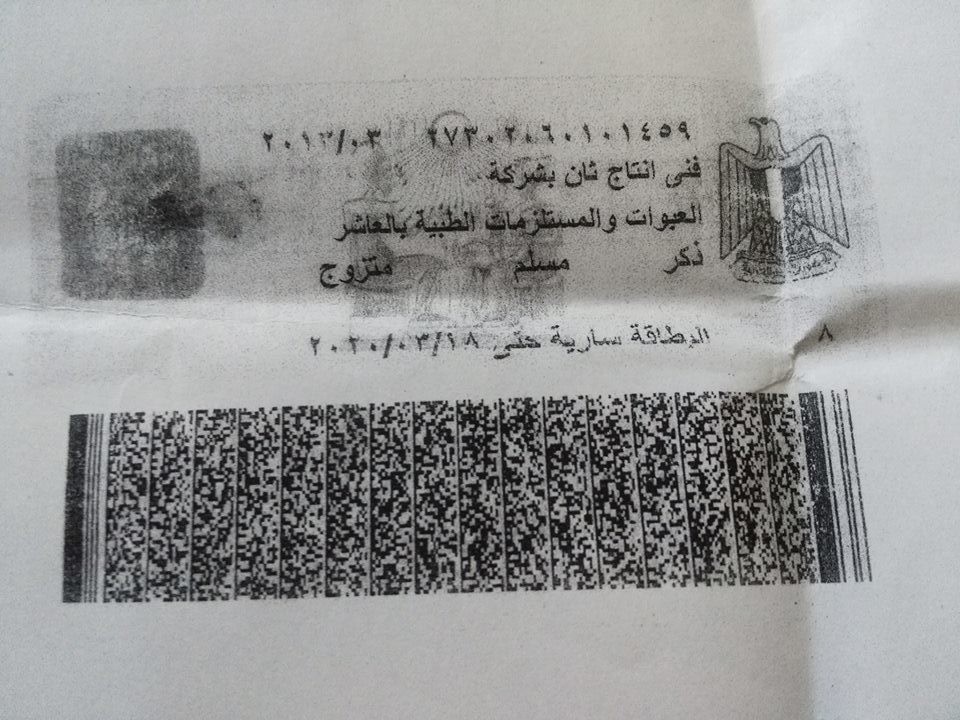 ٢٧٣٠٢٠٦٠١٠١٤٥٩ ٢٠١٣/٠٣
فنى انتاج ثان بشركة
العبوات والمستلزمات الطبية بالعاشر
ذكر مسلم متزوج
البطاقة سارية حتى ٢٠٢٠/٠٣/١٨
٨